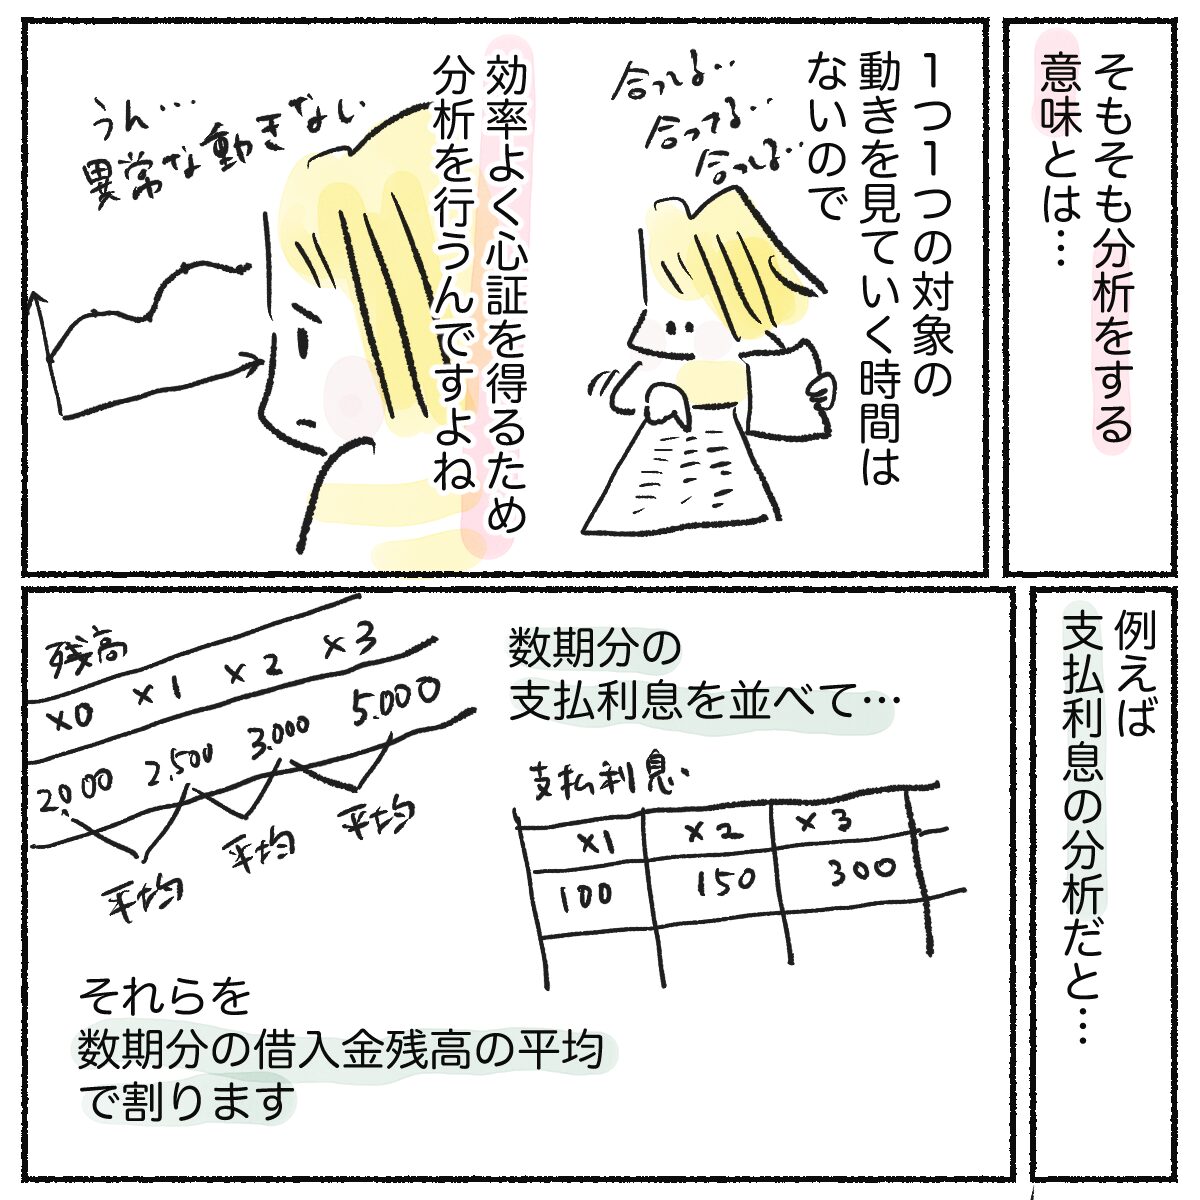 そもそも分析をする
意味とは…
1つ1つの対象の
動きを見ていく時間は
ないので
合ってる‥
合ってる‥
合ってる‥
効率よく心証を得るため
分析を行うんですよね
うん…
異常な動きない
例えば
支払利息の分析だと…
数期分の
支払利息を並べて…
支払利息
×1 ×2 ×3
100 150 300
残高
×0 ×1 ×2 ×3
2,000 2,500 3,000 5,000
平均 平均 平均
それらを
数期分の借入金残高の平均
で割ります